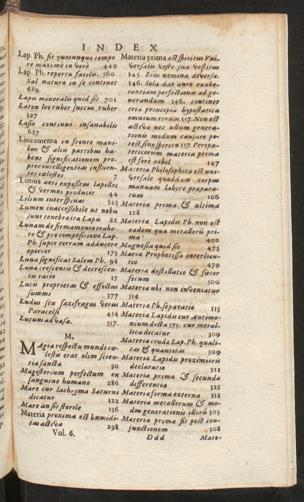 INDEX
Lap. Ph. fit quocunque tempore
re maximè in Verè 449
Lap. Ph. repertu facilis. 560
Sal natura in se continet
619.
Lapis mineralis quid sit. 701
Laton lot ruber succus ruber
127
Lasio continus insanabilis
627
Lineamenta in fronte manibus
& aliis partibus habens
significationem
influentiis
cœlestes. 7
Limus aere expositus lapillos
& vermes producit 44
Lilium interspinas 123
Lumen inaccessibile ut nobis
sunt tenebræ ita Lapu 22
Lunam de firmamento
& pro compositione Lap.
Ph. super terram adducere
oportet 173
Luna significat Salem Ph. 48
Luna crescentis & decrescentis
ratio 17
Lucis proprietas & effectus
summi 377
Ludus seu saxifragus Verus
Paracelsi 454
Lutum ad Vasa. 557.
M.
Magia respectu mundi cælestis
erat olim scientia
sancta 30
Magisterium perfectum ex
sanguine humano 286
Mare cur lachryma Saturni
dicatur 122
Mare an sit sterile 136
Materia proxima est humiditas
activa 298
Vol. 6.
Materia prima est spiritus Universalis
145. Eius nomina diversa.
146. Sola dat auro exuberantiam
perfectione ad generandum
146. continet
tria principia hypostatica
omnium rerum 157. Non est
activa nec ullum generationis
modum causare potest
sine spiritu 157. Peripateticorum
materia prima
est ferè nihil 147
Materia Philosophica est universale
quoddam corpus
manuum labore praeparatum
166
Materia prima & ultima
128
Materia Lapidis Ph. non est
eadem quæ metallorū prima
402
Magnesia quid sit 475
Maria Prophetissa interlocutio
479
Materia destillatio & furor
secum 500
Materia ubi non inveniatur
514
Materia Ph. separatio 115
Materia Lapidis cur Antimonium
dicta 575. cur metallica
dicatur 209
Materia cruda Lap. Ph. qualitas
& quantitas 309
Materia Lapidis proximioris
declaratio 311
Materia prima & secunda
differentia 325
Materia forma externa 312
Materia metallorum & modum
generationis illorū 305
Materia prima fit post conjunctionem
308
Ddd Mate-